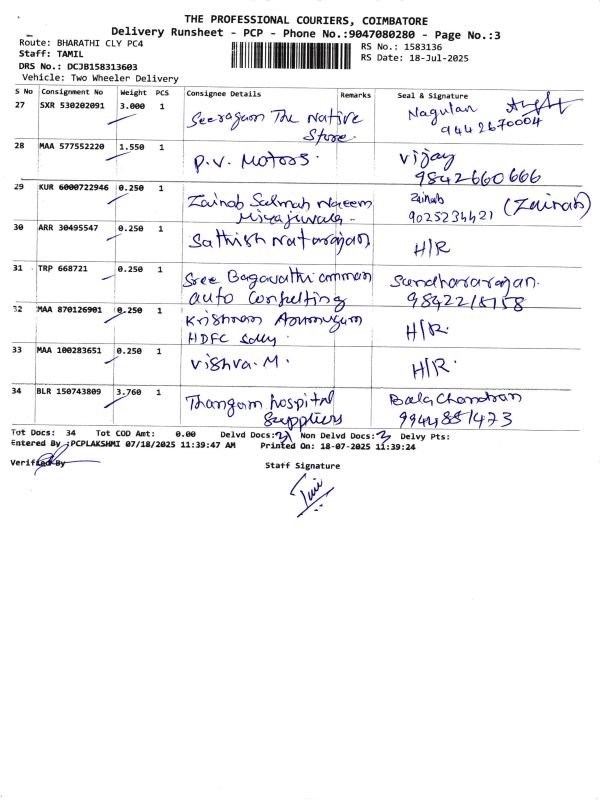 THE PROFESSIONAL COURIERS, COIMBATORE
Delivery Runsheet - PCP - Phone No.:9047080280 - Page No.:3
Route: BHARATHI CLY PC4 RS No.: 1583136
Staff: TAMIL RS Date: 18-Jul-2025
DRS No.: DCJB158313603
Vehicle: Two Wheeler Delivery
S No Consignment No Weight PCS Consignee Details Remarks Seal & Signature
27 SXR 530202091 3.000 1 The Native Nagulan
Store 9442670004
28 MAA 577552220 1.550 1 P.V. Motors. Vijay
9842660666
29 KUR 6000722946 0.250 1 Zainab Salmah Zainab (Zainab)
9025234421
30 ARR 30495547 0.250 1 Sathish Natarajan H/R
31 TRP 668721 0.250 1 Sree Bagavathi amman
auto
32 MAA 870126901 0.250 1 Krishnan H/R.
HDFC
33 MAA 100283651 0.250 1 Vishva.M. H/R.
34 BLR 150743809 3.760 1 Thangam hospital Bala Chandran
Suppliers 9944881473
Tot Docs: 34 Tot COD Amt: 0.00 Delvd Docs:31 Non Delvd Docs:3 Delvy Pts:
Entered By :PCPLAKSHMI 07/18/2025 11:39:47 AM Printed On: 18-07-2025 11:39:24
Verified By Staff Signature